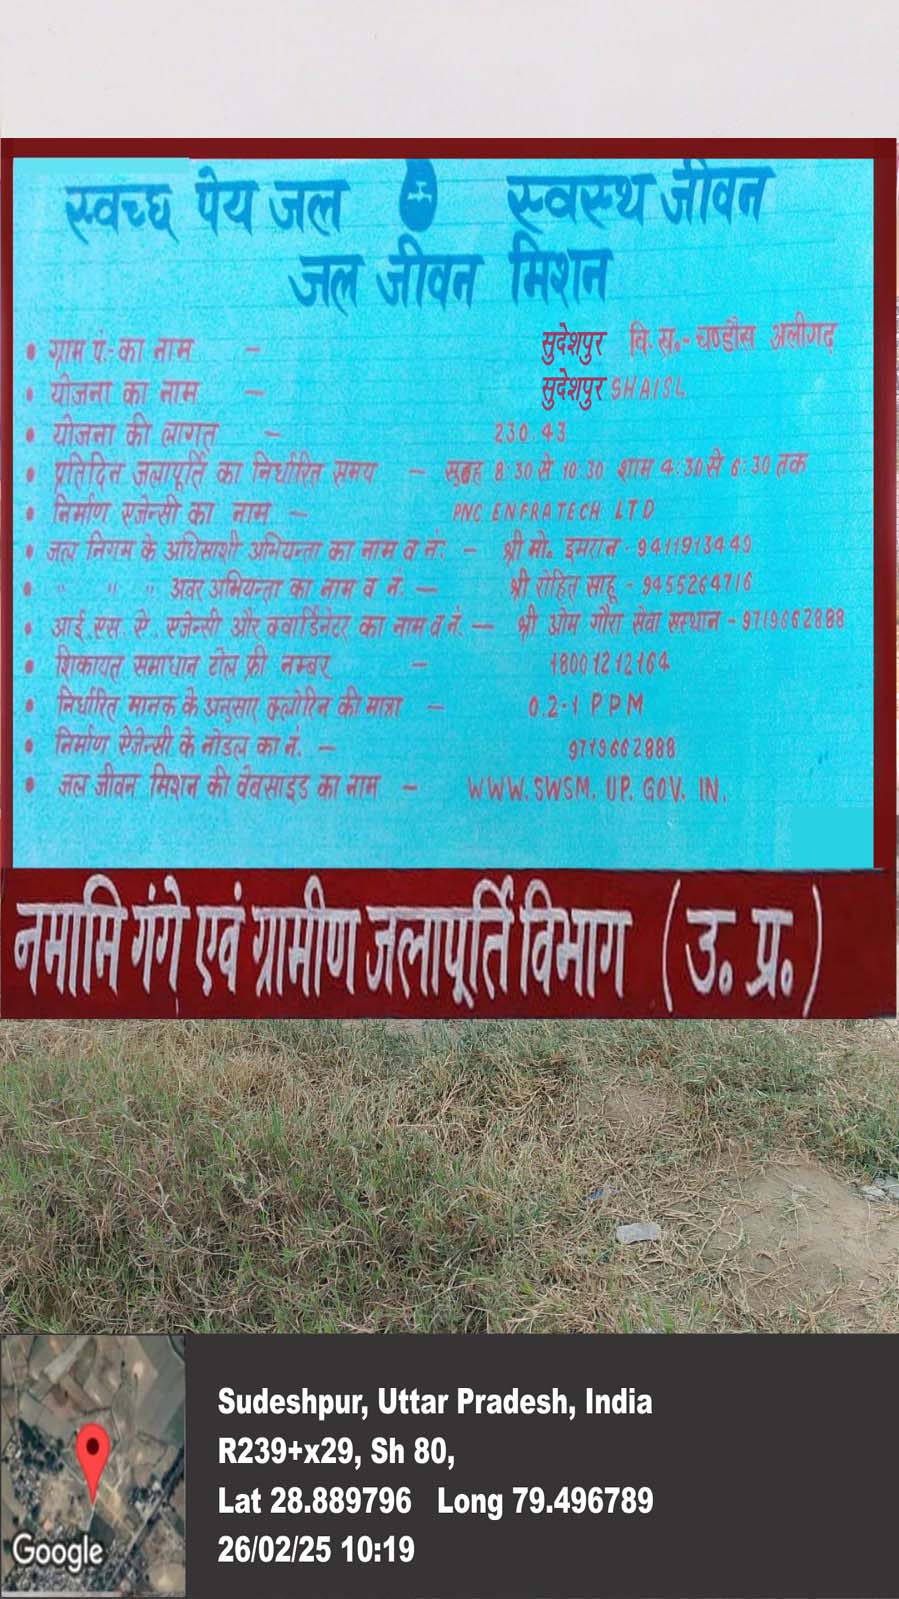 स्वच्छ पेय जल स्वस्थ जीवन
जल जीवन मिशन
• ग्राम पं.-का नाम – सुदेशपुर वि. ख.- चण्डौस अलीगढ़
• योजना का नाम – सुदेशपुर SHAISL
• योजना की लागत – 230.43
• प्रतिदिन जलापूर्ति का निर्धारित समय – सुबह 8:30 से 10:30 शाम 4:30 से 6:30 तक
• निर्माण एजेन्सी का नाम – PNC ENFRATECH LTD
• जल निगम के अधिसाशी अभियन्ता का नाम व नं. – श्री मो. इमरान - 9411913449
• " " " अवर अभियन्ता का नाम व नं. – श्री रोहित साहू - 9455264716
• आई. एस. ऐ. एजेन्सी और क्वार्डिनेटर का नाम व नं. – श्री ओम गौरा सेवा सस्थान - 9719662888
• शिकायत समाधान टोल फ्री नम्बर – 18001212164
• निर्धारित मानक के अनुसार क्लोरिन की मात्रा – 0.2-1 PPM
• निर्माण ऐजेन्सी के नोडल का नं. – 9719662888
• जल जीवन मिशन की वेबसाइड का नाम – WWW. SWSM. UP. GOV. IN.
नमामि गंगे एवं ग्रामीण जलापूर्ति विभाग (उ. प्र.)
Sudeshpur, Uttar Pradesh, India
R239+x29, Sh 80,
Lat 28.889796 Long 79.496789
26/02/25 10:19
Google